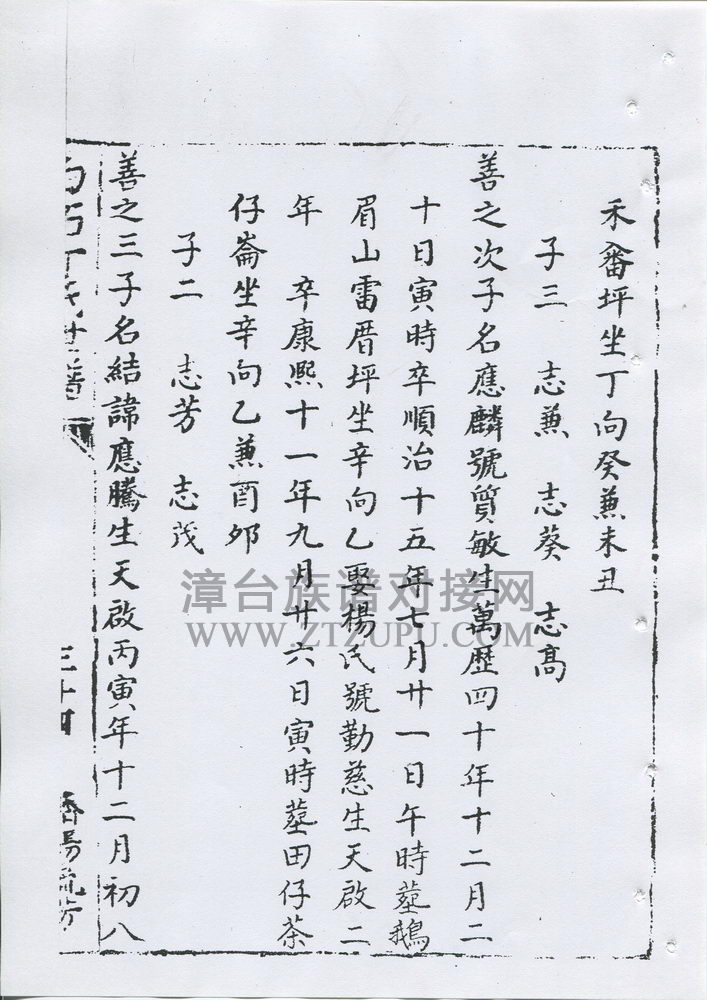 禾審坪坐丁向癸兼未丑
子三　志兼　志葵　志高
善之次子名應麟號質敏生萬歷四十年十二月二
十日寅時卒順治十五年七月廿一日午時塟鵝
眉山雷厝坪坐辛向乙娶楊氏號勤慈生天啟二
年　卒康熙十一年九月廿六日寅時塟田仔茶
仔崙坐辛向乙兼酉夘
子二　志芳　志茂
善之三子名結諱應騰生天啟丙寅年十二月初八
三十四
漳台族谱对接网
WWW.ZTZUPU.COM